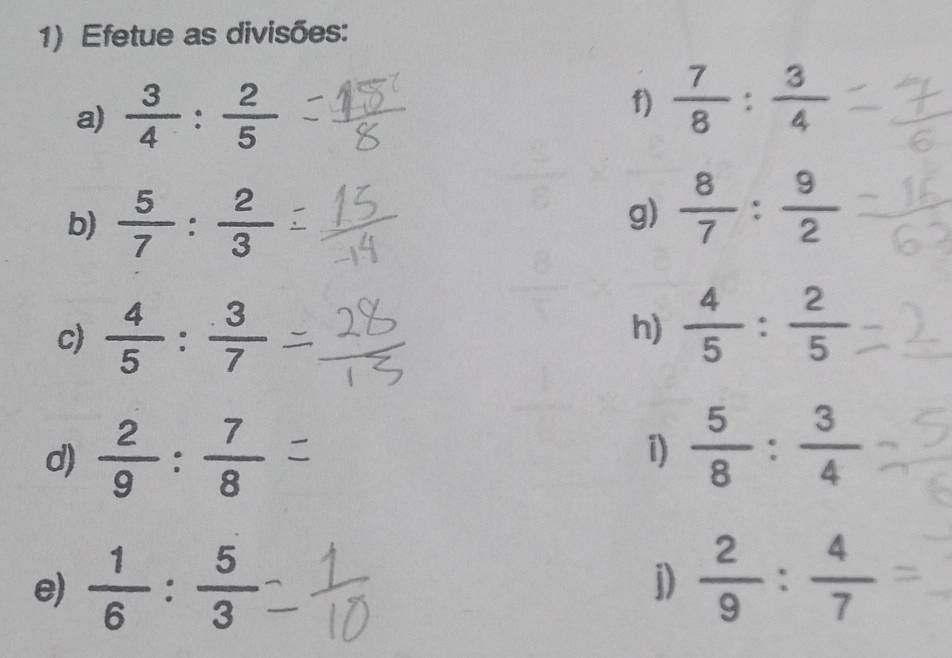 1) Efetue as divisões:
a) 3/4 : 2/5 = 15/8
b) 5/7 : 2/3 = 15/14
c) 4/5 : 3/7 = 28/15
d) 2/9 : 7/8 =
e) 1/6 : 5/3 = 1/10
f) 7/8 : 3/4 = 7/6
g) 8/7 : 9/2 = 16/63
h) 4/5 : 2/5 = 2
i) 5/8 : 3/4 = 5/6
j) 2/9 : 4/7 =